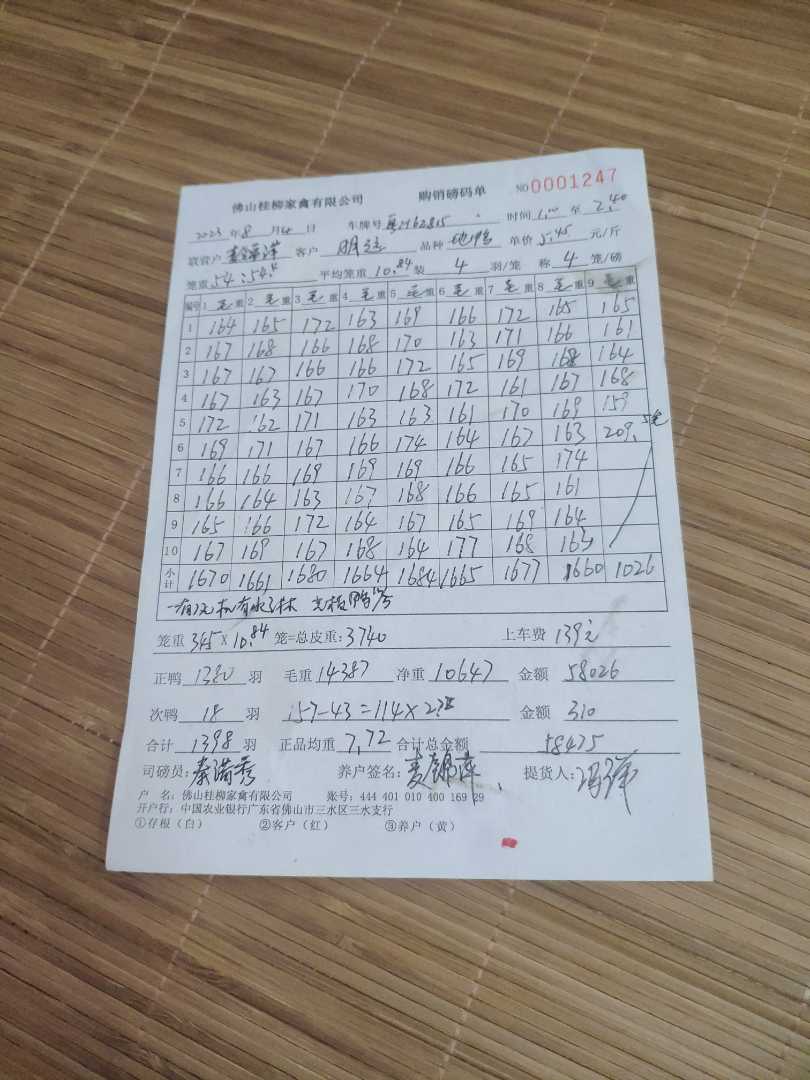 佛山桂柳家禽有限公司 购销磅码单 NO 0001247
2023年8月4日 车牌号 粤M62815 时间 1.00 至 2.40
联营户 客户 品种 地鸭 单价 5.45 元/斤
笼重 54:54.4 平均笼重 10.84 装 4 羽/笼 称 4 笼/磅
编号 1 毛重 2 毛重 3 毛重 4 毛重 5 毛重 6 毛重 7 毛重 8 毛重 9 毛重
1 164 165 172 163 169 166 172 165 165
2 167 168 166 168 170 163 171 166 161
3 167 167 166 166 172 165 169 168 164
4 167 163 167 170 168 172 161 167 168
5 172 162 171 163 163 161 170 169 159
6 169 171 167 166 174 164 167 163 209. 5笼
7 166 166 169 169 169 166 165 174
8 166 164 163 167 168 166 165 161
9 165 166 172 164 167 165 169 164
10 167 169 167 168 164 177 168 163
小计 1670 1661 1680 1664 1684 1665 1677 1660 1026
笼重 345×10.84 笼=总皮重:3740 上车费 139元
正鸭 1380 羽 毛重 14387 净重 10647 金额 58026
次鸭 18 羽 157-43=114× 金额 310
合计 1398 羽 正品均重 7.72 合计总金额 58475
司磅员:秦满秀 养户签名: 提货人:
户 名:佛山桂柳家禽有限公司 账号:444 401 010 400 169 29
开户行:中国农业银行广东省佛山市三水区三水支行
①存根(白) ②客户(红) ③养户(黄)